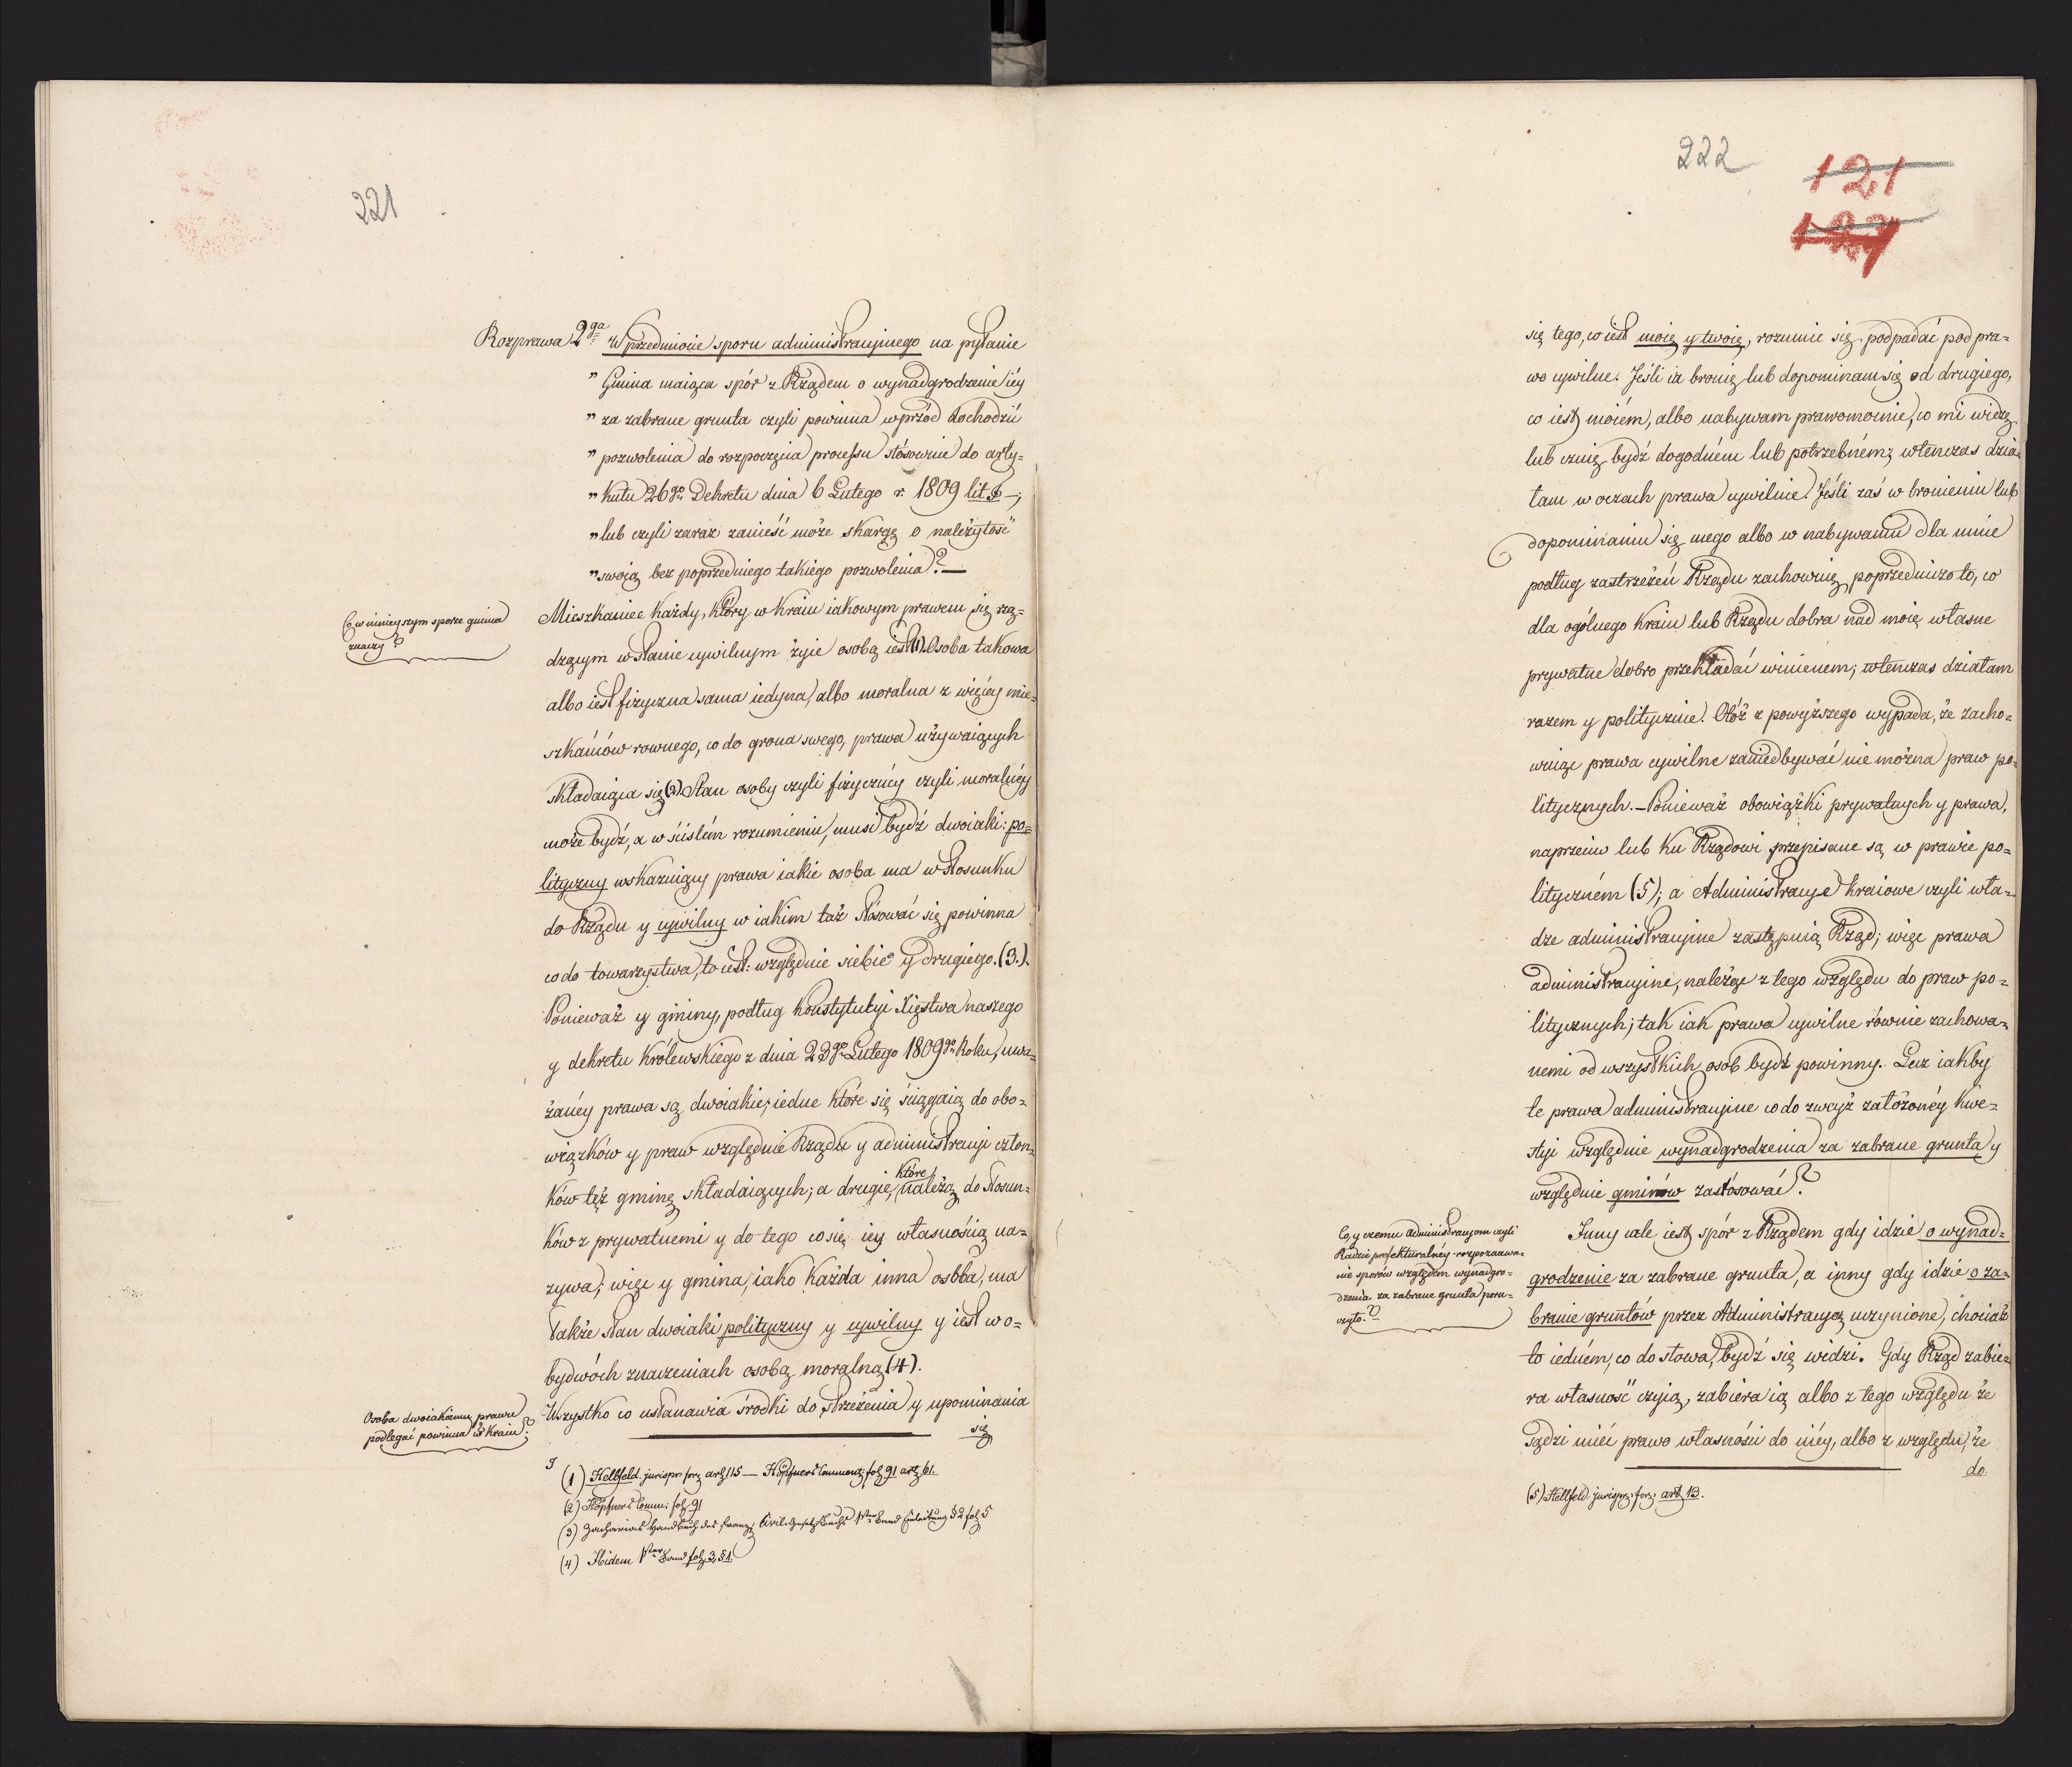 221
Rozprawa 2ga W przedmiocie sporu administracyinego na pytanie
" Gmina maiąca spór z Rządem o wynadgrodzenie iéy
" za zabrane grunta czyli powinna wprzód dochodzić
" pozwolenia do rozpoczęcia processu stósownie do arty=
" kułu 26go Dekretu dnia 6 Lutego r. 1809 lit —;
" lub czyli zaraz zanieść może skargę o należytość
" swoią bez poprzedniego takiego pozwolenia? —
Co w ninieyszym sporze gmina
znaczy?
Mieszkaniec każdy, który w kraiu iakowym prawem się rzą=
dzącym w stanie cywilnym żyie osobą iest (1). Osoba takowa
albo iest fizyczna sama iedyna, albo moralna z więcéy mie=
szkańców rownego, co do grona swego, prawa używaiących
składaiąca się (2). Stan osoby czyli fizycznéy czyli moralnéy
może bydź, a w ścisłém rozumieniu, musi bydź dwoiaki: po=
lityczny wskazuiący prawa iakie osoba ma w stosunku
do Rządu y cywilny w iakim taż stósować się powinna
co do towarzystwa, to iest: względnie siebie y drugiego. (3.).
Ponieważ y gminy, podług konstytucyi Xięstwa naszego
y dekretu Królewskiego z dnia 23go Lutego 1809go Roku, uwa=
żanéy prawa są dwoiakie; iedne które się ściągaią do obo=
wiązków y praw względnie Rządu y administracyi człon=
ków téż gminę składaiących; a drugie, które należą do stosun=
ków z prywatnemi y do tego co się iey własnością na=
zywa; więc y gmina, iako każda inna osoba, ma
także stan dwoiaki polityczny y cywilny y iest w o=
bydwóch znaczeniach osobą moralną (4).
Osoba dwoiakiemu prawu
podlegać powinna w Kraiu?
Wszystko co ustanawia środki do strzeżenia y upominania
się
(1) Hellfeld. jurispr: for: art: 115 — Höpfners Comment; fol; 91 art; 61.
(2) Höpfners Comm: fol; 91
(3) Zacharias Handbuch des franz; Civil Gesetzbuchs 1ster Band Einleitung § 2 fol; 5
(4) Ibidem 1ster Band fol; 3, § 1.
222
121
się tego, co iest moię y twoię, rozumie się podpadać pod pra=
wo cywilne. Jeśli ia bronię lub dopominam się od drugiego,
co iest moiém, albo nabywam prawomocnie, co mi widzę
lub cznię bydź dogodném lub potrzebném; wtenczas dzia=
łam w oczach prawa cywilnie. Jeśli zaś w bronieniu lub
dopominaniu się mego albo w nabywaniu dla mnie
podług zastrzeżeń Rządu zachownię poprzedniczo to, co
dla ogólnego Kraiu lub Rządu dobra nad moię własne
prywatne dobro przekładać winienem; wtenczas działam
razem y politycznie. Otóż z powyższego wypada, że zacho=
wuiąc prawa cywilne zaniedbywać nie można praw po=
litycznych. — Ponieważ obowiązki prywatnych y prawa,
naprzeciw lub ku Rządowi przepisane są w prawie po=
lityczném (5); a Administracye kraiowe czyli wła=
dze administracyine zastępuią Rząd; więc prawa
administracyine, należąc z tego względu do praw po=
litycznych; tak iak prawa cywilne równie zachowa=
nemi od wszystkich osob bydź powinny. Lecz iakby
te prawa administracyine co do zwyż założonéy kwe=
styi względnie wynadgrodzenia za zabrane grunta y
względnie gminów zastósować?
Co, y czemu Administracyom czyli
Radzie prefekturalnéy rozpoznawa=
nie sporów względem wynadgro=
dzenia za zabrane grunta poru=
czyło?
Inny cale iest spór z Rządem gdy idzie o wynad=
grodzenie za zabrane grunta, a inny gdy idzie o za=
branie gruntów przez Administracyą uczynione, chociaż
to iedném, co do słowa, bydź się widzi. Gdy Rząd zabie=
ra własność czyią, zabiera ią albo z tego względu że
sądzi mieć prawo własności do niéy, albo z względu, że
do
(5) Hellfeld. jurispr: for: art; 13.